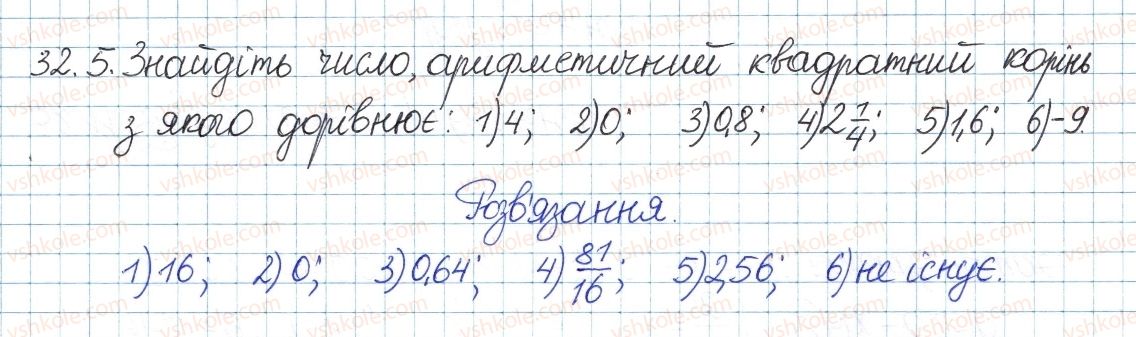 32.5. Знайдіть число, арифметичний квадратний корінь
з якого дорівнює: 1) 4; 2) 0; 3) 0,8; 4) 2 1/4; 5) 1,6; 6) -9.
Розв'язання.
1) 16; 2) 0; 3) 0,64; 4) 81/16; 5) 2,56; 6) не існує.